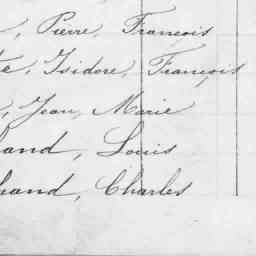 , Pierre, François
te, Isidore, François
, Jean, Marie
and, Louis
hand, Charles